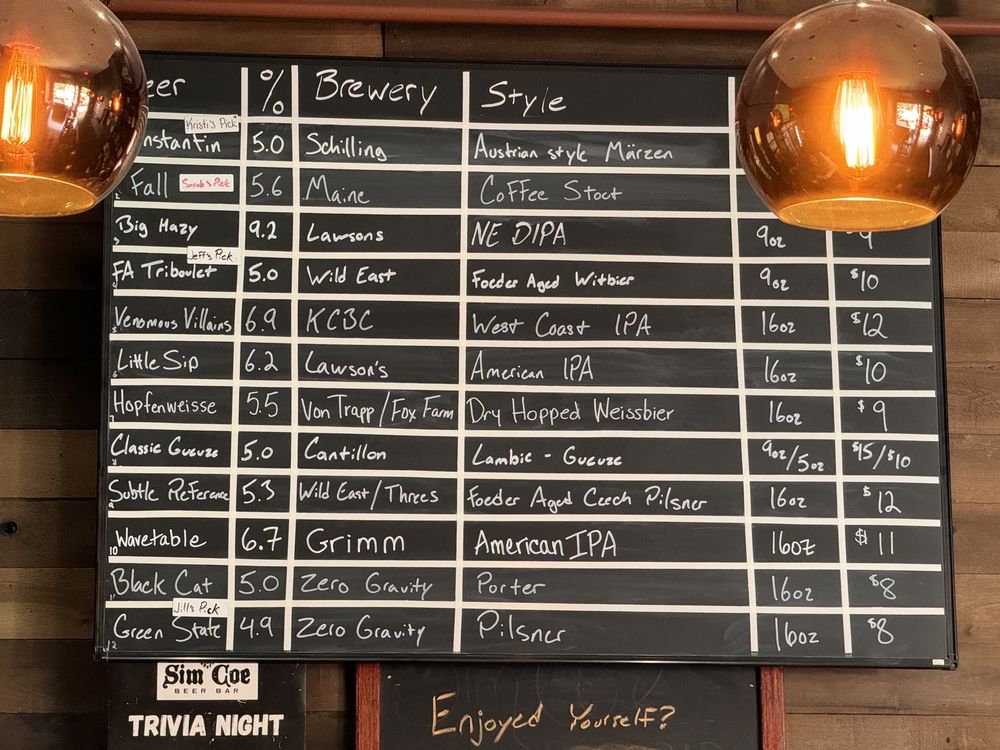 eer % Brewery Style
Kristi's Pick
nstantin 5.0 Schilling Austrian style Märzen
2 Fall Sarah's Pick 5.6 Maine Coffee Stout
3 Big Hazy 9.2 Lawsons NE DIPA 9oz $9
Jeff's Pick
4 FA Triboulet 5.0 Wild East Foeder Aged Witbier 9oz $10
5 Venomous Villains 6.9 KCBC West Coast IPA 16oz $12
6 Little Sip 6.2 Lawson's American IPA 16oz $10
7 Hopfenweisse 5.5 Von Trapp/Fox Farm Dry Hopped Weissbier 16oz $9
8 Classic Gueuze 5.0 Cantillon Lambic - Gueuze 9oz/5oz $15/$10
9 Subtle Reference 5.3 Wild East/Threes Foeder Aged Czech Pilsner 16oz $12
10 Wavetable 6.7 Grimm American IPA 16oz $11
11 Black Cat 5.0 Zero Gravity Porter 16oz $8
Jill's Pick
12 Green State 4.9 Zero Gravity Pilsner 16oz $8
Sim Coe
BEER BAR
TRIVIA NIGHT
Enjoyed Yourself?